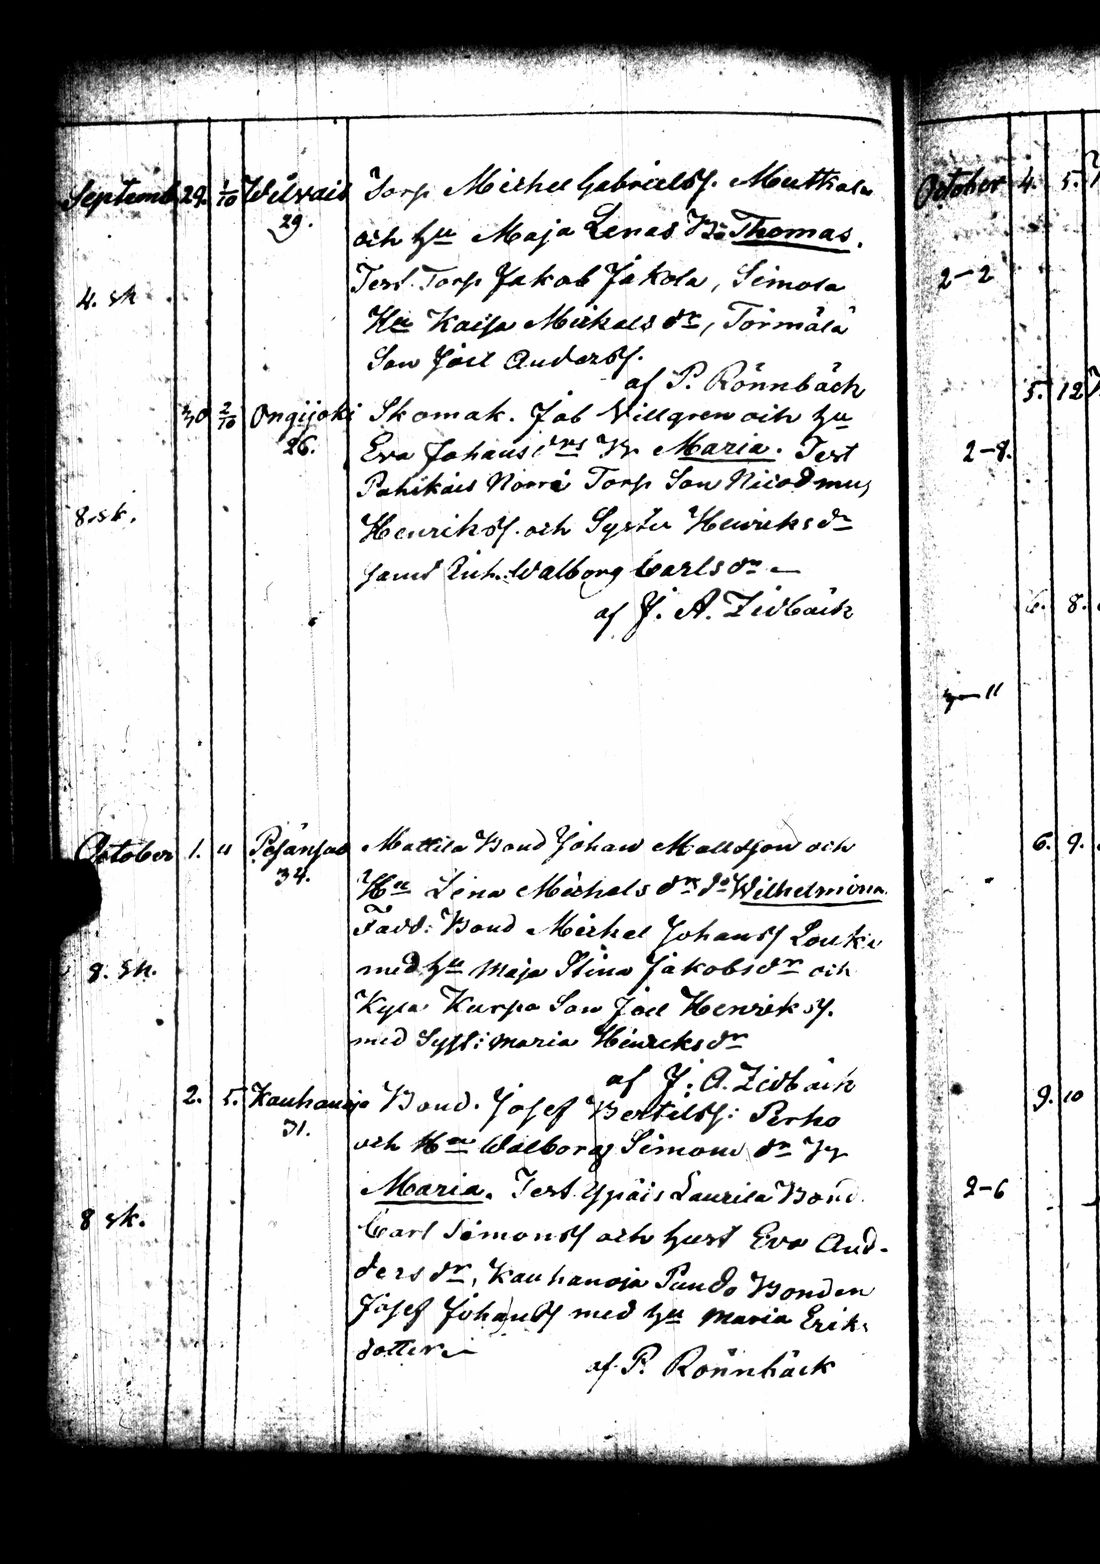 Septemb. 29. 1/10 Wilvais Torp Michel Gabrielss. Mutkala
29. och hu Maja Lenas Bs Thomas.
4. sk Test. Torp Jakob Jakola, Simola
Hu Kaisa Mickels dr, Törmälä
Son Joel Anderss.
af P. Rönnbäck
30 2/10 Ongijoki Skomak. Job Villgren och hu
26. Eva Johans drs Maria. Test
Pahikais Norri Torp Son Nicodmus
8. sk. Henrikss. och Syster Henriks dr
samt Enk. Walborg Carls dr
af J. A. Zidbäck
October 1. " Mattila Bond Johan Mattsson och
34. Hu Lena Michels drs do Wilhelmina.
Fadd: Bond Michel Johanss Louki
8. sk. med hu Maja Stina Jakobs dr och
Kyla Kurpa Son Joel Henrikss.
med Syst: Maria Henricks dr
af J. A. Zidbäck
2. 5. Kauhanoja Bond. Josef Bertelss: Perho
31. och Hu Walborg Simons dr
Maria. Test. Ypäis Laurila Bond
8 sk. Carl Simonss och hust Eva And-
ders dr, Kauhanoja Pundo Bonden
Josef Johanss med hu Maria Eriks
dotter
af P. Rönnbäck
October 4. 5.
2-2
5. 12
2-8.
6. 8.
6. 9.
9. 10
2-6